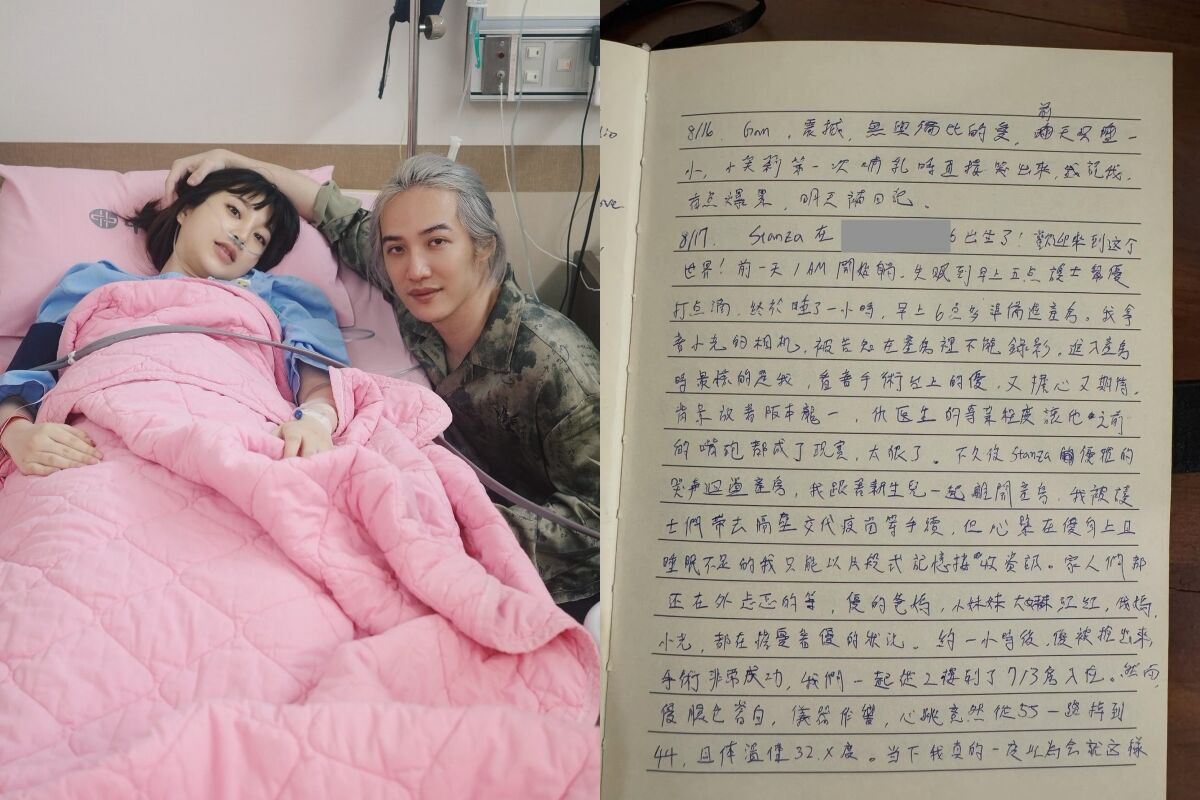 前
8/16. Gnn，震撼，無與倫比的愛，兩天只睡一
小，小芙莉第一次哺乳時直接哭出來，我記我，
有点爆累，明天補日記。
8/17. Stanza在 6出生了！歡迎來到这个
世界！前一天1AM開始躺，失眠到早上五点護士幫優
打点滴，終於睡了一小時，早上6点多準備進產房。我拿
着小光的相机，被告知在產房裡不能錄影。進入產房
時最慌的是我，看着手術台上的優，又擔心又期待。
背景放着坂本龍一，仇医生的專業程度讓他之前
的嘴砲都成了現實，太狠了。不久後Stanza 優雅的
哭声迴盪產房，我跟着新生兒一起離開產房，我被護
士們帶去隔壁交代疫苗等手續，但心繫在優身上且
睡眠不足的我只能以片段式記憶接收資訊。家人們都
还在外忐忑的等，優的爸媽，小妹妹 江江，我媽，
小光，都在擔憂着優的狀況。約一小時後，優被推出來，
手術非常成功，我們一起從2樓到了713房入住。然而，
優臉色蒼白，儀器作響，心跳竟然從55一路掉到
44，且体溫僅32.X度。当下我真的一度以為会就这樣